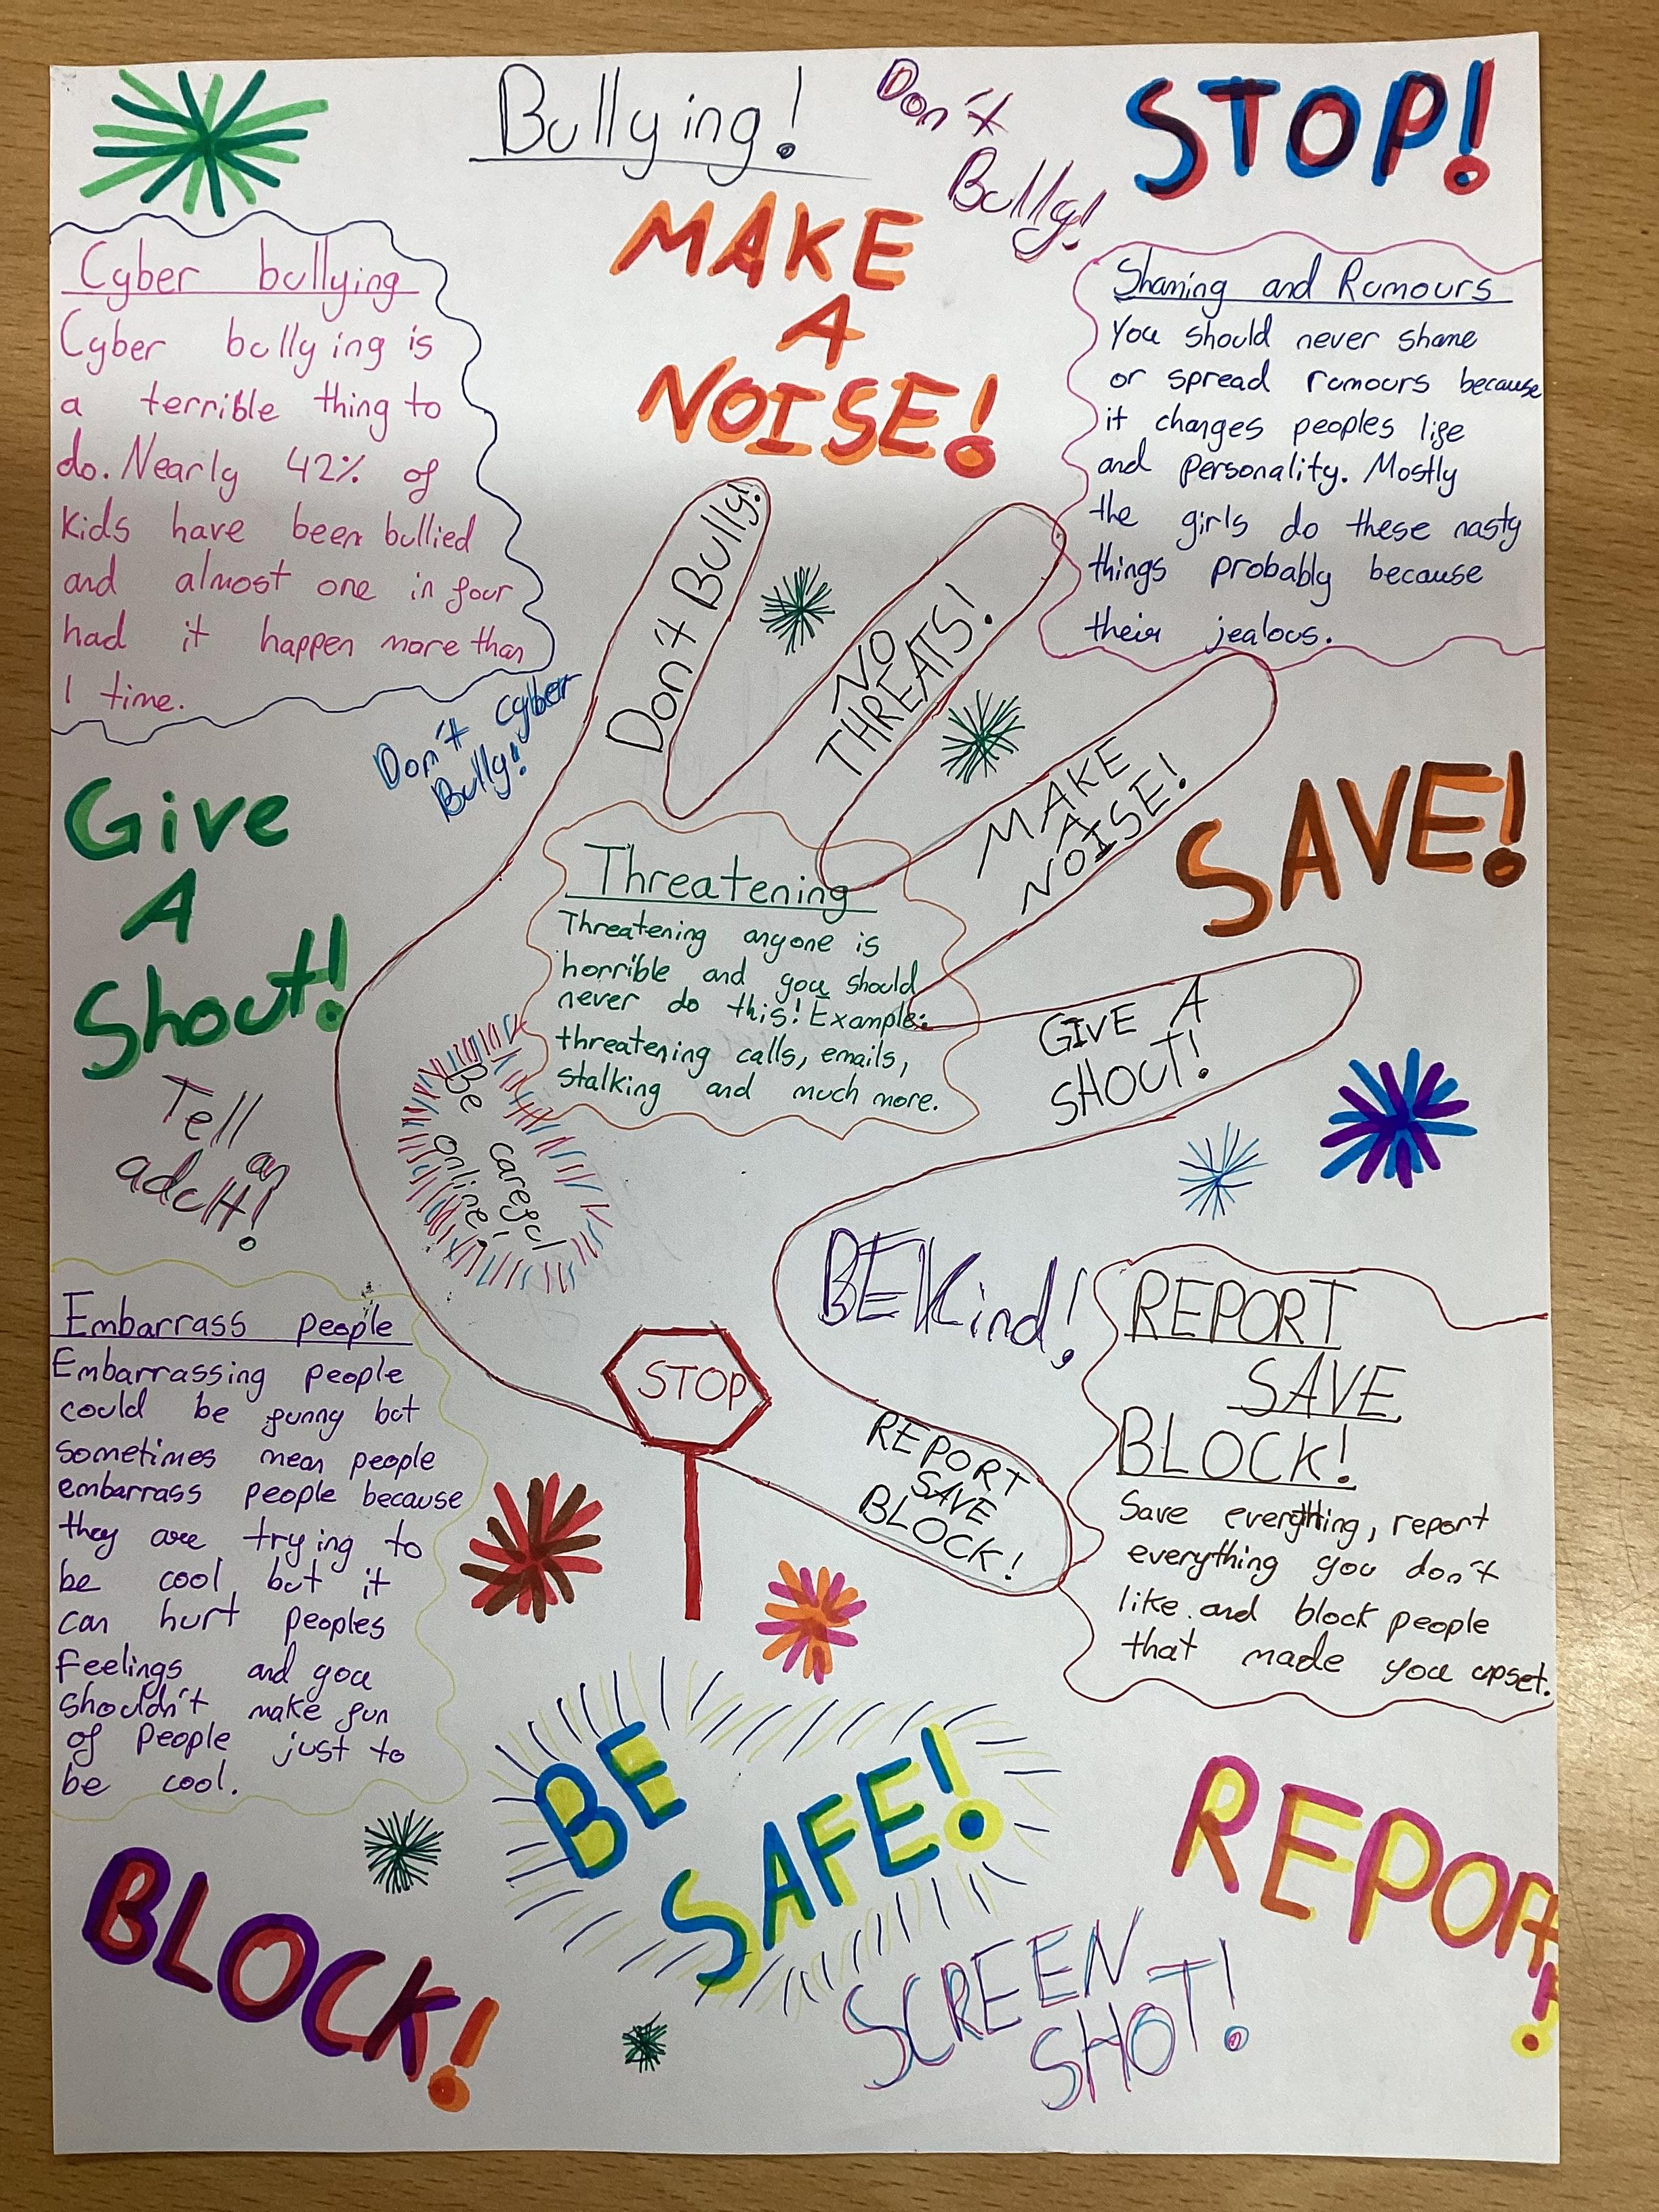 Bullying!
Don't
Bully!
STOP!
MAKE
A
NOISE!
Cyber bullying
Cyber bullying is
a terrible thing to
do. Nearly 42% of
kids have been bullied
and almost one in four
had it happen more than
1 time.
Shaming and Rumours
You should never shame
or spread rumours because
it changes peoples life
and personality. Mostly
the girls do these nasty
things probably because
their jealous.
Don't Cyber
Bully!
Don't Bully!
NO
THREATS!
MAKE
A
NOISE!
GIVE A
SHOUT!
REPORT
SAVE
BLOCK!
Give
A
Shout!
SAVE!
Threatening
Threatening anyone is
horrible and you should
never do this! Example:
threatening calls, emails,
stalking and much more.
Be careful
online!
Tell an
adult!
BE Kind!
STOP
Embarrass people
Embarrassing people
could be funny but
sometimes mean people
embarrass people because
they are trying to
be cool, but it
can hurt peoples
feelings and you
shouldn't make fun
of people just to
be cool.
REPORT
SAVE
BLOCK!
Save everything, report
everything you don't
like and block people
that made you upset.
BE
SAFE!
BLOCK!
REPORT
!
SCREEN
SHOT!